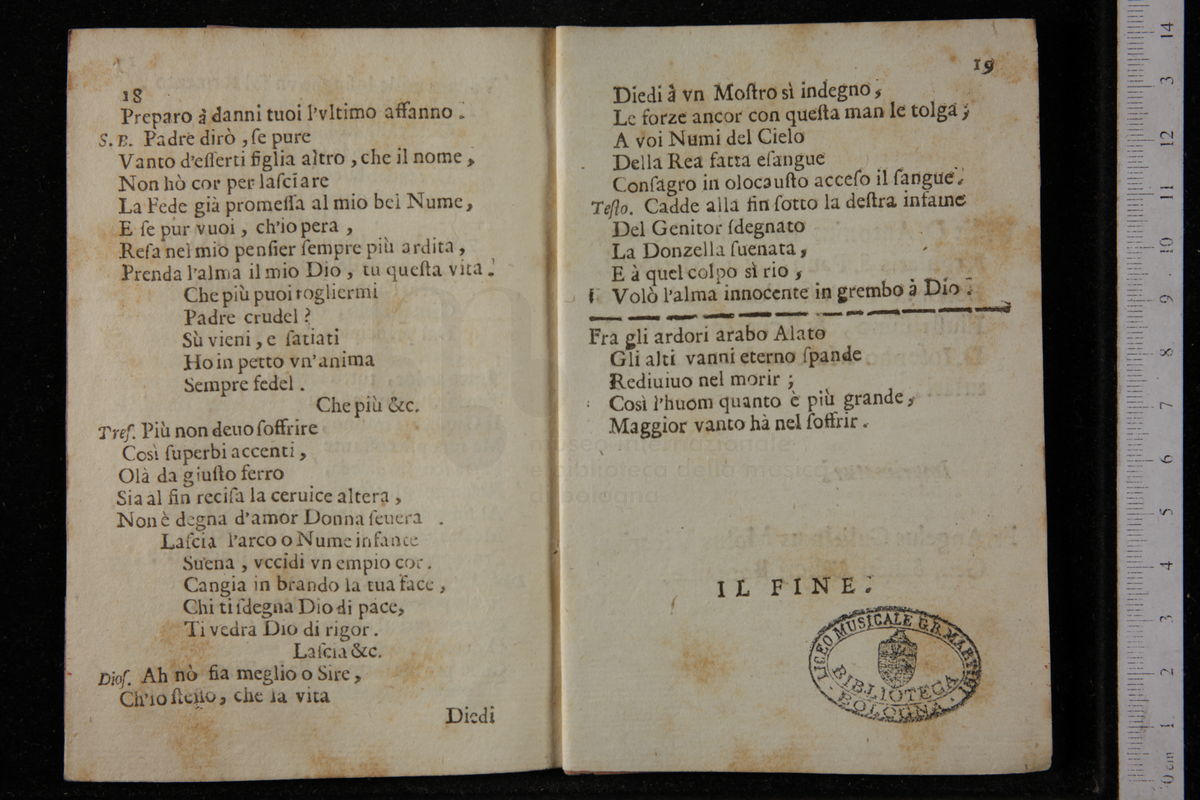 18
Preparo à danni tuoi l'vltimo affanno.
S.B. Padre dirò, ſe pure
Vanto d'eſſerti figlia altro, che il nome,
Non hò cor per laſciare
La Fede già promeſſa al mio bel Nume,
E ſe pur vuoi, ch'io pera,
Reſa nel mio penſier ſempre più ardita,
Prenda l'alma il mio Dio, tu queſta vita.
Che più puoi togliermi
Padre crudel?
Sù vieni, e ſatiati
Ho in petto vn'anima
Sempre fedel.
Che più &c.
Treſ. Più non deuo ſoffrire
Così ſuperbi accenti,
Olà da giuſto ferro
Sia al fin reciſa la ceruice altera,
Non è degna d'amor Donna ſeuera.
Laſcia l'arco o Nume infante
Suena, vccidi vn empio cor.
Cangia in brando la tua face,
Chi ti ſdegna Dio di pace,
Ti vedrà Dio di rigor.
Laſcia &c.
Dioſ. Ah nò fia meglio o Sire,
Ch'io ſteſſo, che la vita
Diedi
19
Diedi à vn Moſtro sì indegno,
Le forze ancor con queſta man le tolga;
A voi Numi del Cielo
Della Rea fatta eſangue
Conſagro in olocauſto acceſo il ſangue.
Teſto. Cadde alla fin ſotto la deſtra infame
Del Genitor ſdegnato
La Donzella ſuenata,
E à quel colpo sì rio,
Volò l'alma innocente in grembo à Dio.
Fra gli ardori arabo Alato
Gli alti vanni eterno ſpande
Rediuiuo nel morir;
Così l'huom quanto è più grande,
Maggior vanto hà nel ſoffrir.
museo internazionale
e biblioteca della musica
di bologna
IL FINE.
LICEO MUSICALE G.B. MARTINI
BIBLIOTECA
BOLOGNA